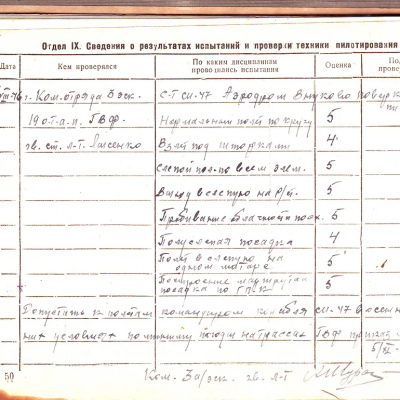 Отдел IX. Сведения о результатах испытаний и проверки техники пилотирования
Дата
Кем проверялся
По каким дисциплинам
проводились испытания
Оценка
По
прове
VIII-46 г. Ком. отряда Вэск. С-Т СИ-47 Аэродром Внуково
19 о.т.а.п. ГВФ. Нормальный полёт по кругу 5
гв. ст. л-т. Лысенко Взлёт под шторками 4
Слепой пол-по всем элем. 5
Выход вслепую на р/ст. 5
Пробивание облачности и 5
Полуслепая посадка 4
Полёт вслепую на
одном моторе 5
Построение маршрута и
посадка по 5
Допустить к полётам командиром корабля СИ-47 в осенн
условиях по погоды на трассах ГВФ
50
Ком. 3 а/эск. гв. л-т